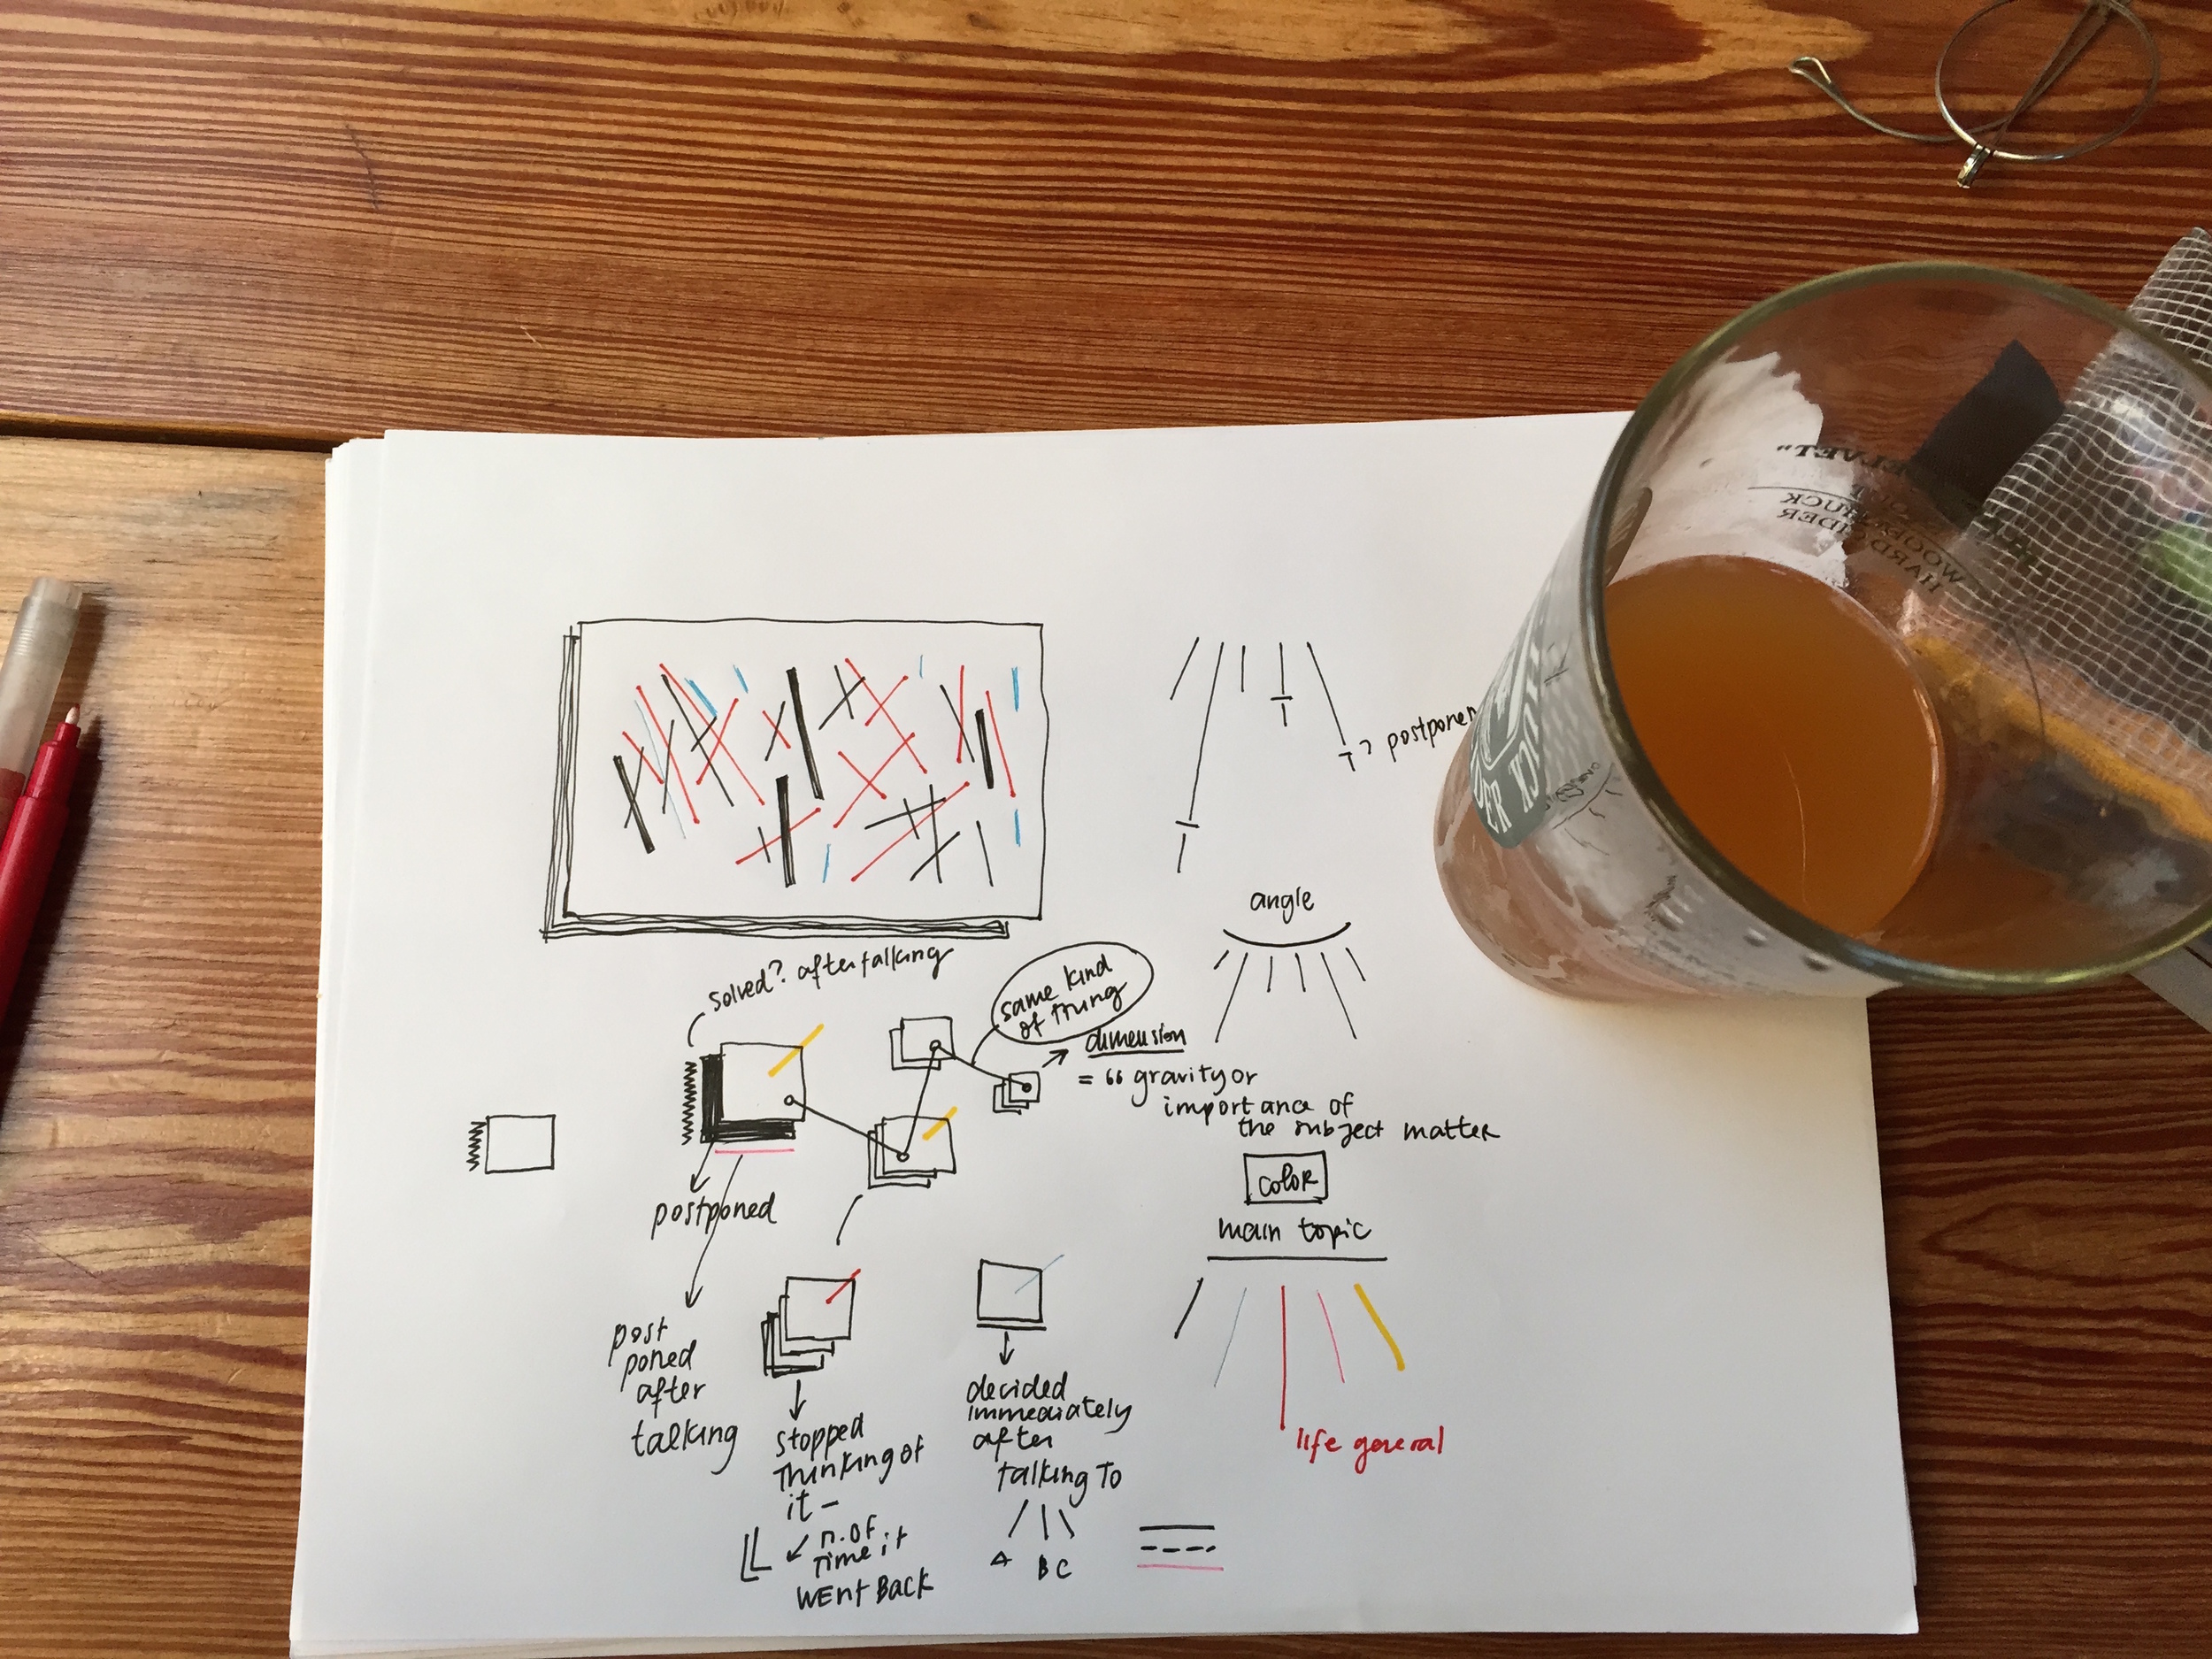 postponed
angle
solved? after talking
same kind
of thing
dimension
= " gravity or
importance of
the subject matter
color
main topic
postponed
post
poned
after
talking
stopped
thinking of
it –
n. of
time it
went back
decided
immediately
after
talking to
A B C
life general
VELVET"
WOODCHUCK
HARD CIDER